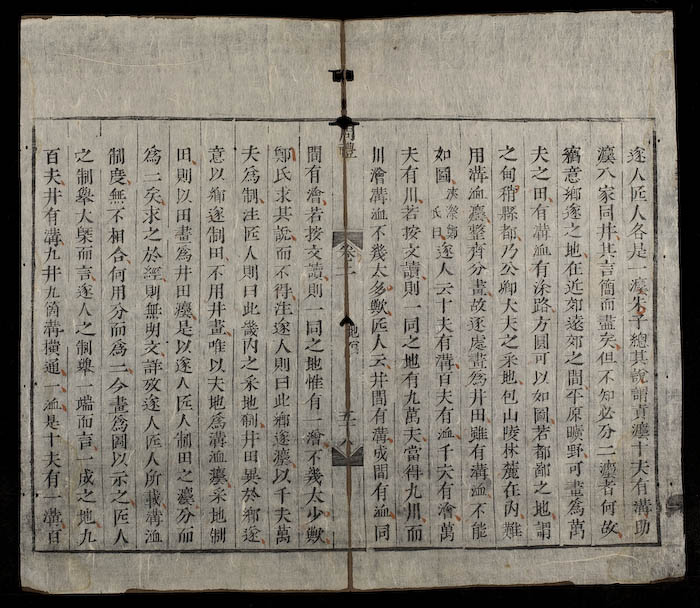 遂人匠人各是一灋朱子總其說謂貢灋十夫有溝助
灋八家同井其言簡而盡矣但不知必分二灋者何故
竊意鄉遂之地在近郊遠郊之間平原曠野可畫爲萬
夫之田有溝洫有涂路方圓可以如圖若都鄙之地謂
之甸稍縣都乃公卿大夫之采地包山陵林麓在內難
用溝洫灋整齊分畫故逐處畫爲井田雖有溝洫不能
如圖 鄭氏曰遂人云十夫有溝百夫有洫千夫有澮萬
夫有川若按文讀則一同之地有九萬夫當得九川而
川澮溝洫不幾太多歟匠人云井間有溝成間有洫同
周禮 卷二 地官
間有澮若按文讀則一同之地惟有一澮不幾太少歟
鄭氏求其說而不得注遂人則曰此鄉遂灋以千夫萬
夫爲制注匠人則曰此畿內之采地制井田異於鄉遂
意以鄉遂制田不用井畫唯以夫地爲溝洫灋采地制
田則以田畫爲井田灋是以遂人匠人制田之灋分而
爲二矣求之於經則無明文詳攷遂人匠人所載溝洫
制度無不相合何用分而爲二今畫爲圖以示之匠人
之制舉大槩而言遂人之制舉一端而言一成之地九
百夫井有溝九井九箇溝橫通一洫是十夫有一溝百